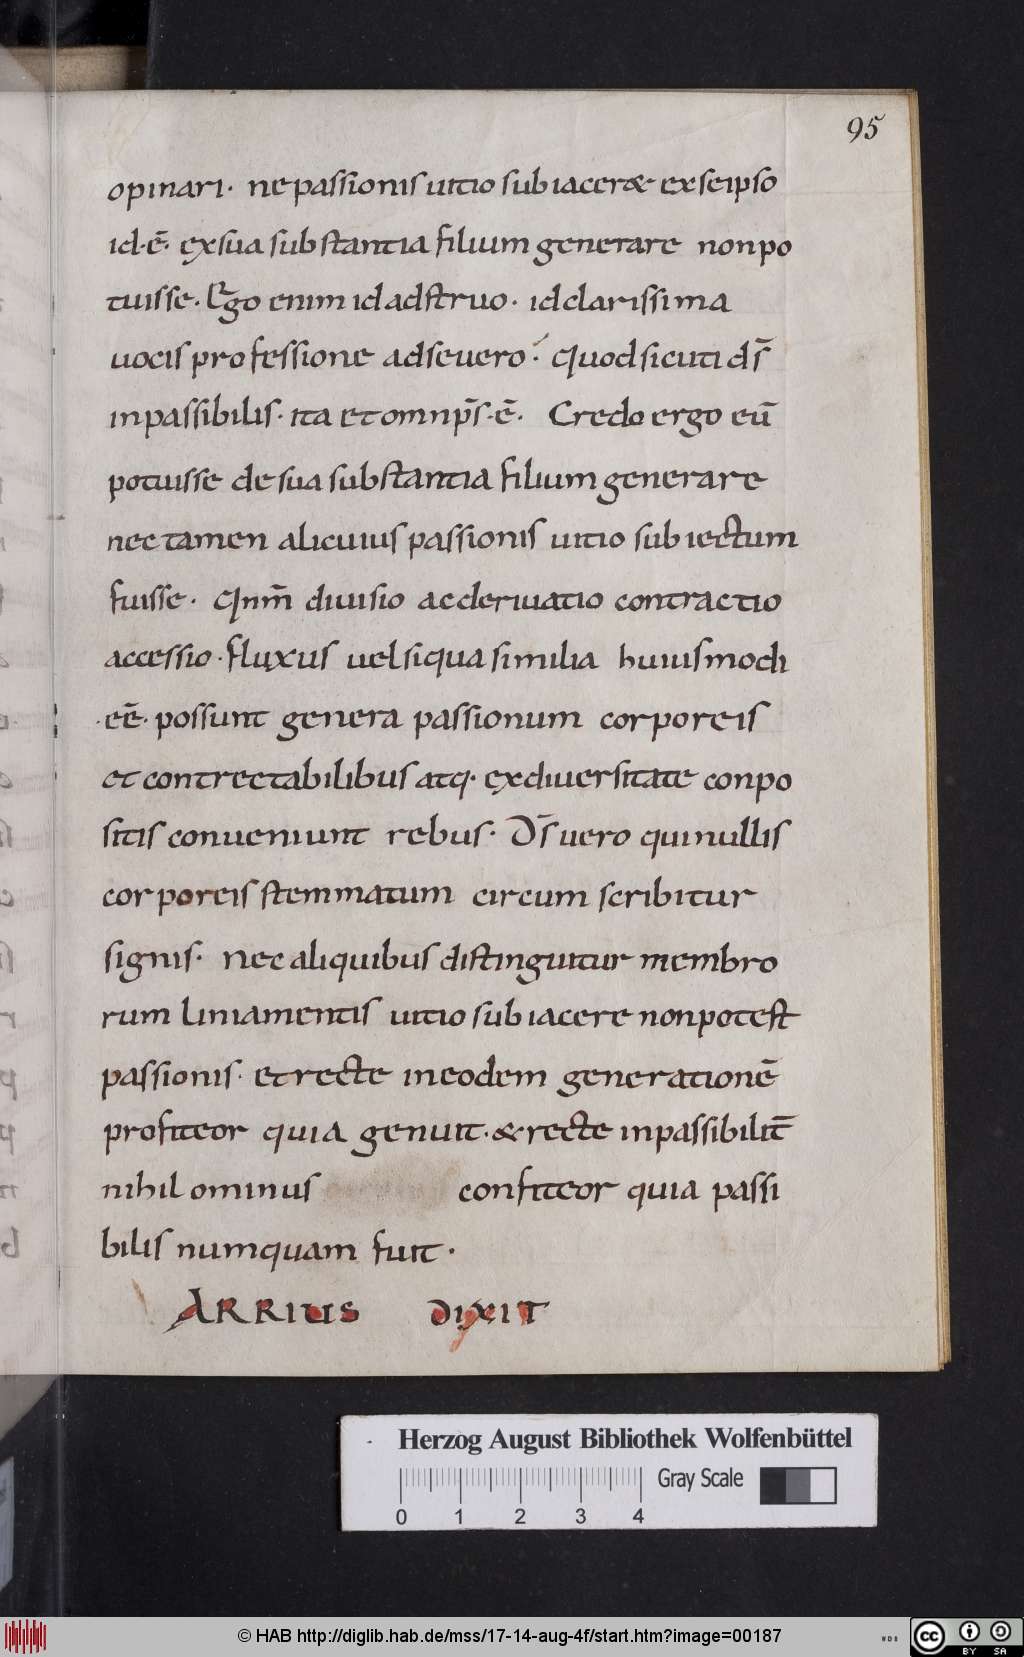 95
opinari· ne passionis uitio subiacer& ex seipso
id·ē· ex sua substantia filium generare non po
tuisse· Ego enim id adstruo· id clarissima
uocis professione adseuero· Quod sicuti ds̄
inpassibilis· ita et omnps̄·ē· Credo ergo eū
potuisse de sua substantia filium generare
nec tamen alicuius passionis uitio subiectum
fuisse· Qnm̄ diuisio ac deriuatio contractio
accessio· fluxus uel siqua similia huiusmodi
·eē· possunt genera passionum corporeis
et contrectabilibus atq· ex diuersitate conpo
sitis conueniunt rebus· Ds̄ uero qui nullis
corporeis stemmatum circum scribitur
signis· nec aliquibus distinguitur membro
rum liniamentis uitio subiacere non potest
passionis· et recte in eodem generationē
profiteor quia genuit· & recte inpassibilit̄
nihil ominus confiteor quia passi
bilis numquam fuit·
ARRIUS DIXIT
Herzog August Bibliothek Wolfenbüttel
Gray Scale
0 1 2 3 4
© HAB http://diglib.hab.de/mss/17-14-aug-4f/start.htm?image=00187
WDB
cc BY SA